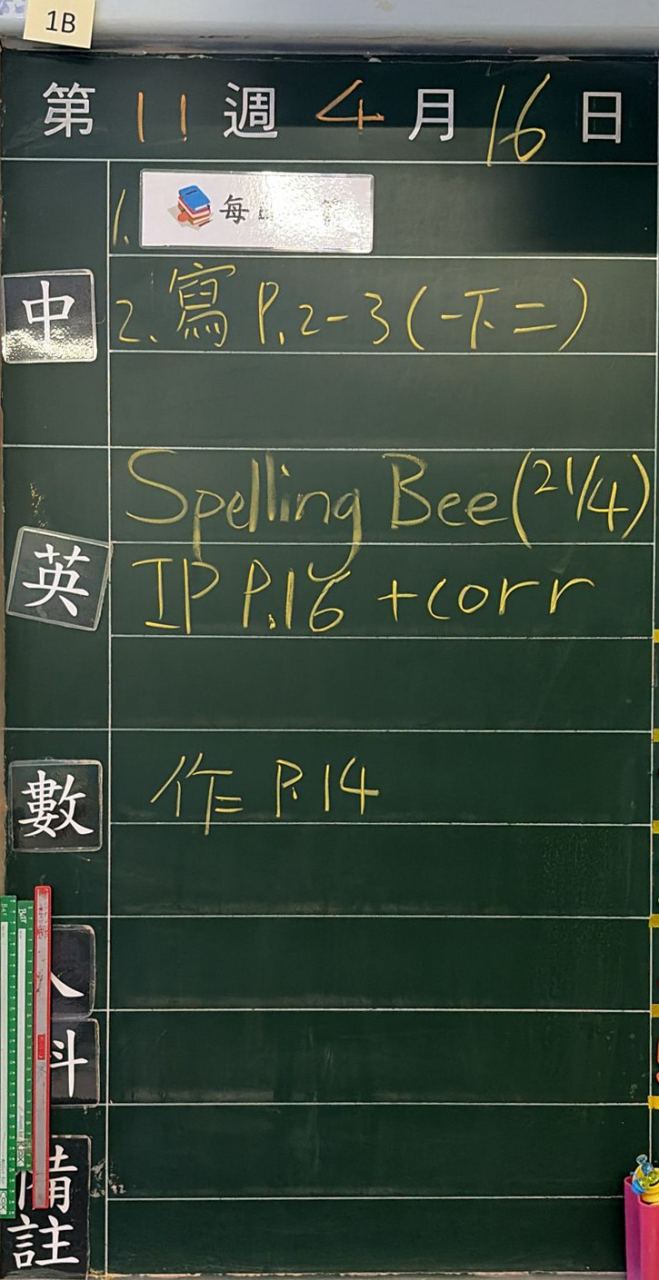 1B
第 11 週 4 月 16 日
1. 每
中
2. 寫 P.2-3(一下二)
Spelling Bee(21/4)
英
IP P.16 +corr
數
作 P.14
人
科
備
註